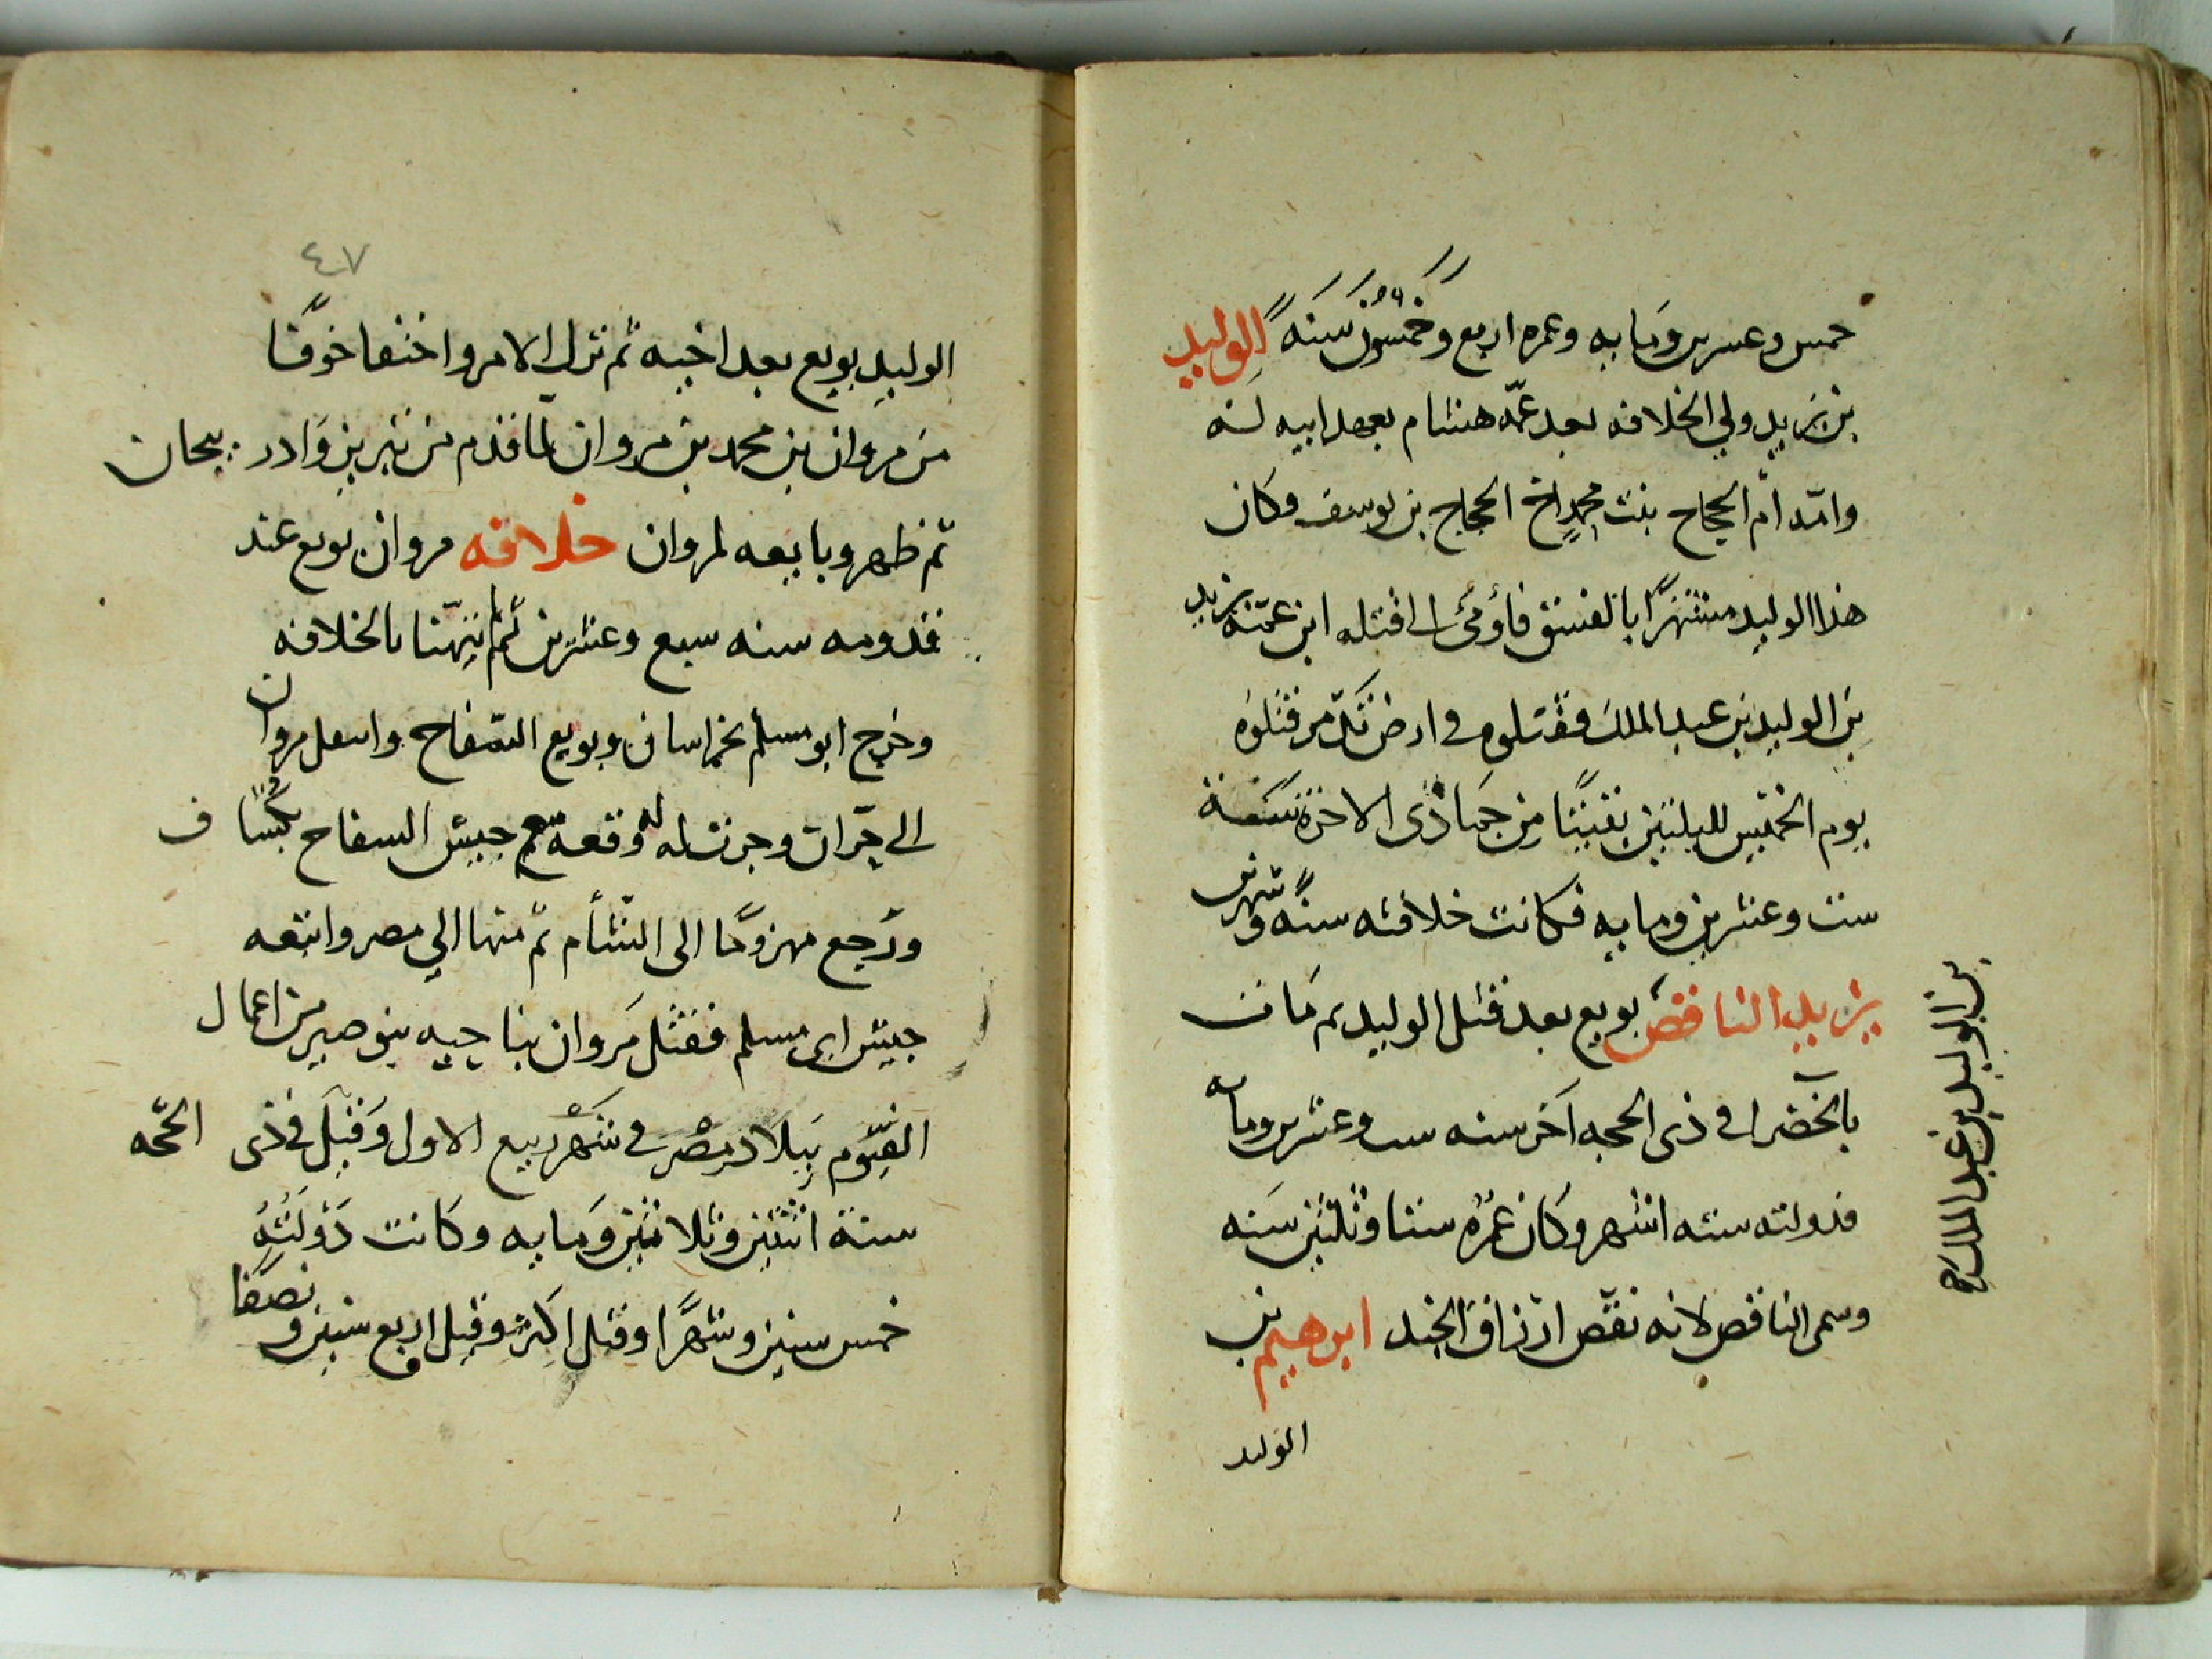 خمس وعشرين ومايه وعمره اربع وخمسون سنه الوليد
بن يزيد ولي الخلافه بعد عمه هشام بعهد ابيه له
وامه ام الحجاج بنت محمد اخ الحجاج بن يوسف وكان
هذا الوليد مشتهرا بالفسق فاومى الى قتله ابن عمه يزيد
بن الوليد بن عبد الملك فقتلوه في ارض تدمر قتلوه
يوم الخميس لليلتين بقيتا من جمادى الاخرة سنة
ست وعشرين ومايه فكانت خلافته سنة وشهرين
يزيد الناقص بويع بعد قتل الوليد ثم مات
بن الوليد بن عبد الملك صح
بالخضرا في ذى الحجه اخر سنه ست وعشرين ومايه
فدولته ستة اشهر وكان عمره ستا وثلثين سنه
وسمى الناقص لانه نقص ارزاق الجند ابرهيم بن
الوليد
٤٧
الوليد بويع بعد اخيه ثم نزل الامر واختفا خوفا
من مروان بن محمد بن مروان لما قدم من نبريز وادربيجان
ثم ظهر وبايعه لمروان خلافه مروان بويع عند
قدومه سنه سبع وعشرين ثم تهنا بالخلافه
وخرج ابو مسلم بخراسان وبويع السفاح مروان
الى حران وجرت له وقعة مع جيش السفاح بكشاف
ورجع مهزوما الى الشام ثم منها الي مصر واتبعه
جيش ابى مسلم فقتل مروان بناحيه بنوصير من اعمال
الفيوم ببلاد مصر في شهر ربيع الاول وقيل في ذى الحجه
سنة اثنتين وثلاثين ومايه وكانت دولته
خمس سنين وشهرا وقيل اكثر وقيل اربع سنين ونصفا